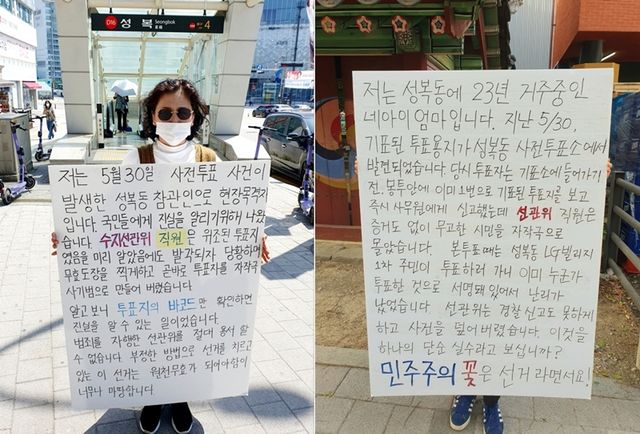 D16 성복 Seongbok 4
저는 5월30일 사전투표 사건이
발생한 성복동 참관인으로 현장목격자
입니다. 국민들에게 진실을 알리기위해 나왔
습니다 수지선관위 직원은 위조된 투표지
였음을 미리 알았음에도 발각되자 당황하며
무효도장을 찍게하고 곧바로 투표자를 자작극
사기범으로 만들어 버렸습니다
알고보니 투표지의 바코드만 확인하면
진실을 알 수 있는 일이었습니다.
범죄를 자행한 선관위를 절대 용서 할
수 없습니다. 부정한 방법으로 선거를 치르고
있는 이 선거는 원천무효가 되어야함이
너무나 마땅합니다.
저는 성복동에 23년 거주중인
네아이 엄마입니다. 지난 5/30,
기표된 투표용지가 성복동 사전투표소에서
발견되었습니다 당시투표자는 기표소에 들어가기
전, 봉투안에 이미 1번으로 기표된 투표지를 보고
즉시 사무원에게 신고했는데 선관위 직원은
증거도 없이 무고한 시민을 자작극으로
몰았습니다. 본투표때는 성복동 LG빌리지
1차 주민이 투표하러 가니 이미 누군가
투표한 것으로 서명돼 있어서 난리가
났었습니다. 선관위는 경찰 신고도 못하게
하고 사건을 덮어 버렸습니다. 이것을
하나의 단순 실수라고 보십니까?
민주주의 꽃은 선거 라면서요!